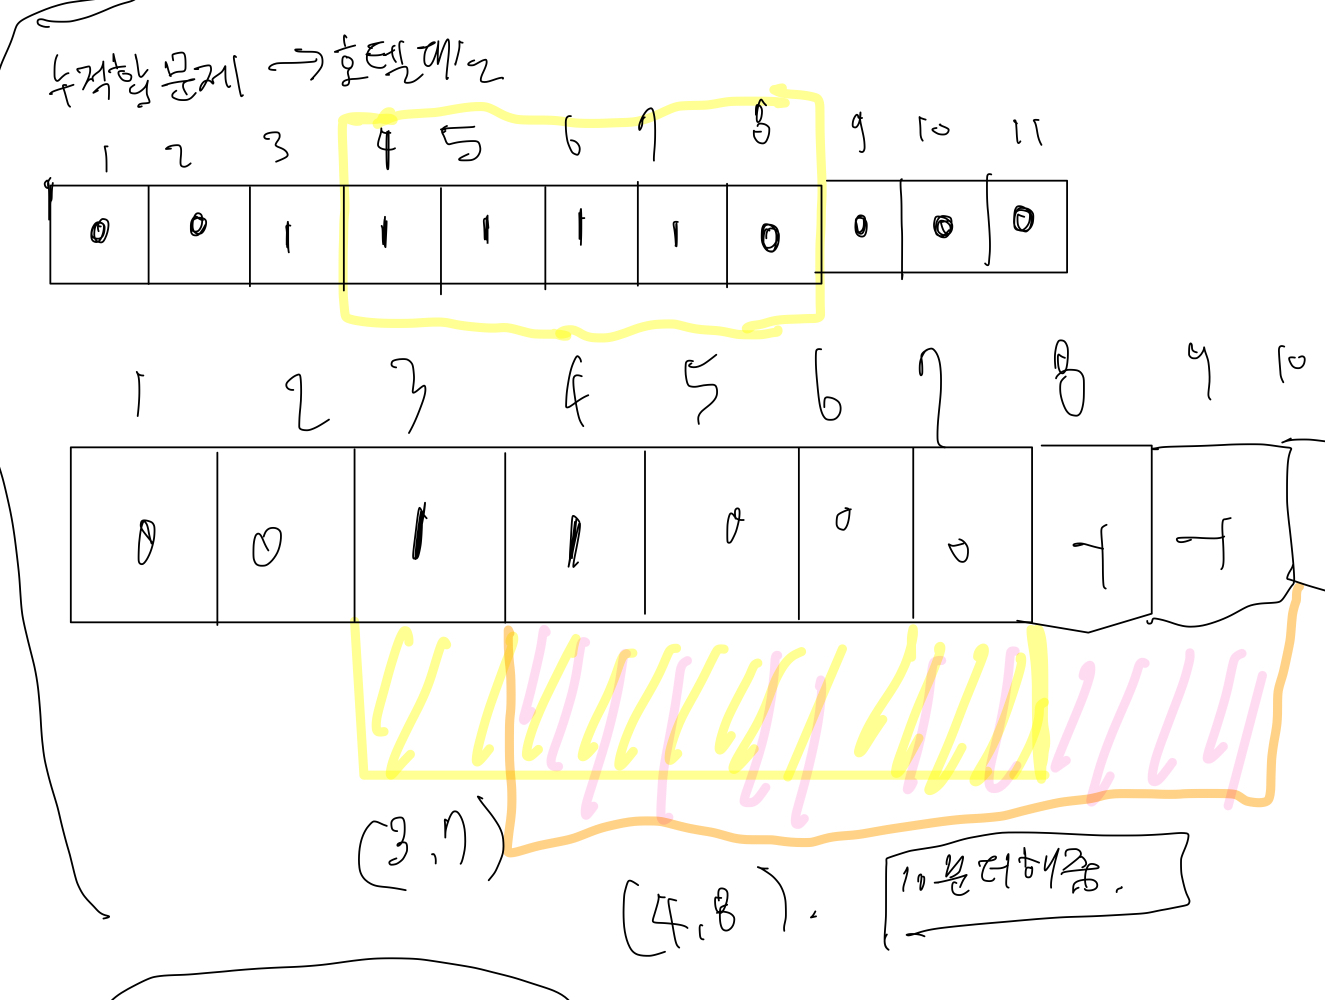 누적합 문제 → 호텔 대실
1 2 3 4 5 6 7 8 9 10 11
0 0 1 1 1 1 1 0 0 0 0
1 2 3 4 5 6 7 8 9 10
0 0 1 1 0 0 0 -1 -1
(3,7)
(4,8).
10분 더해줌.